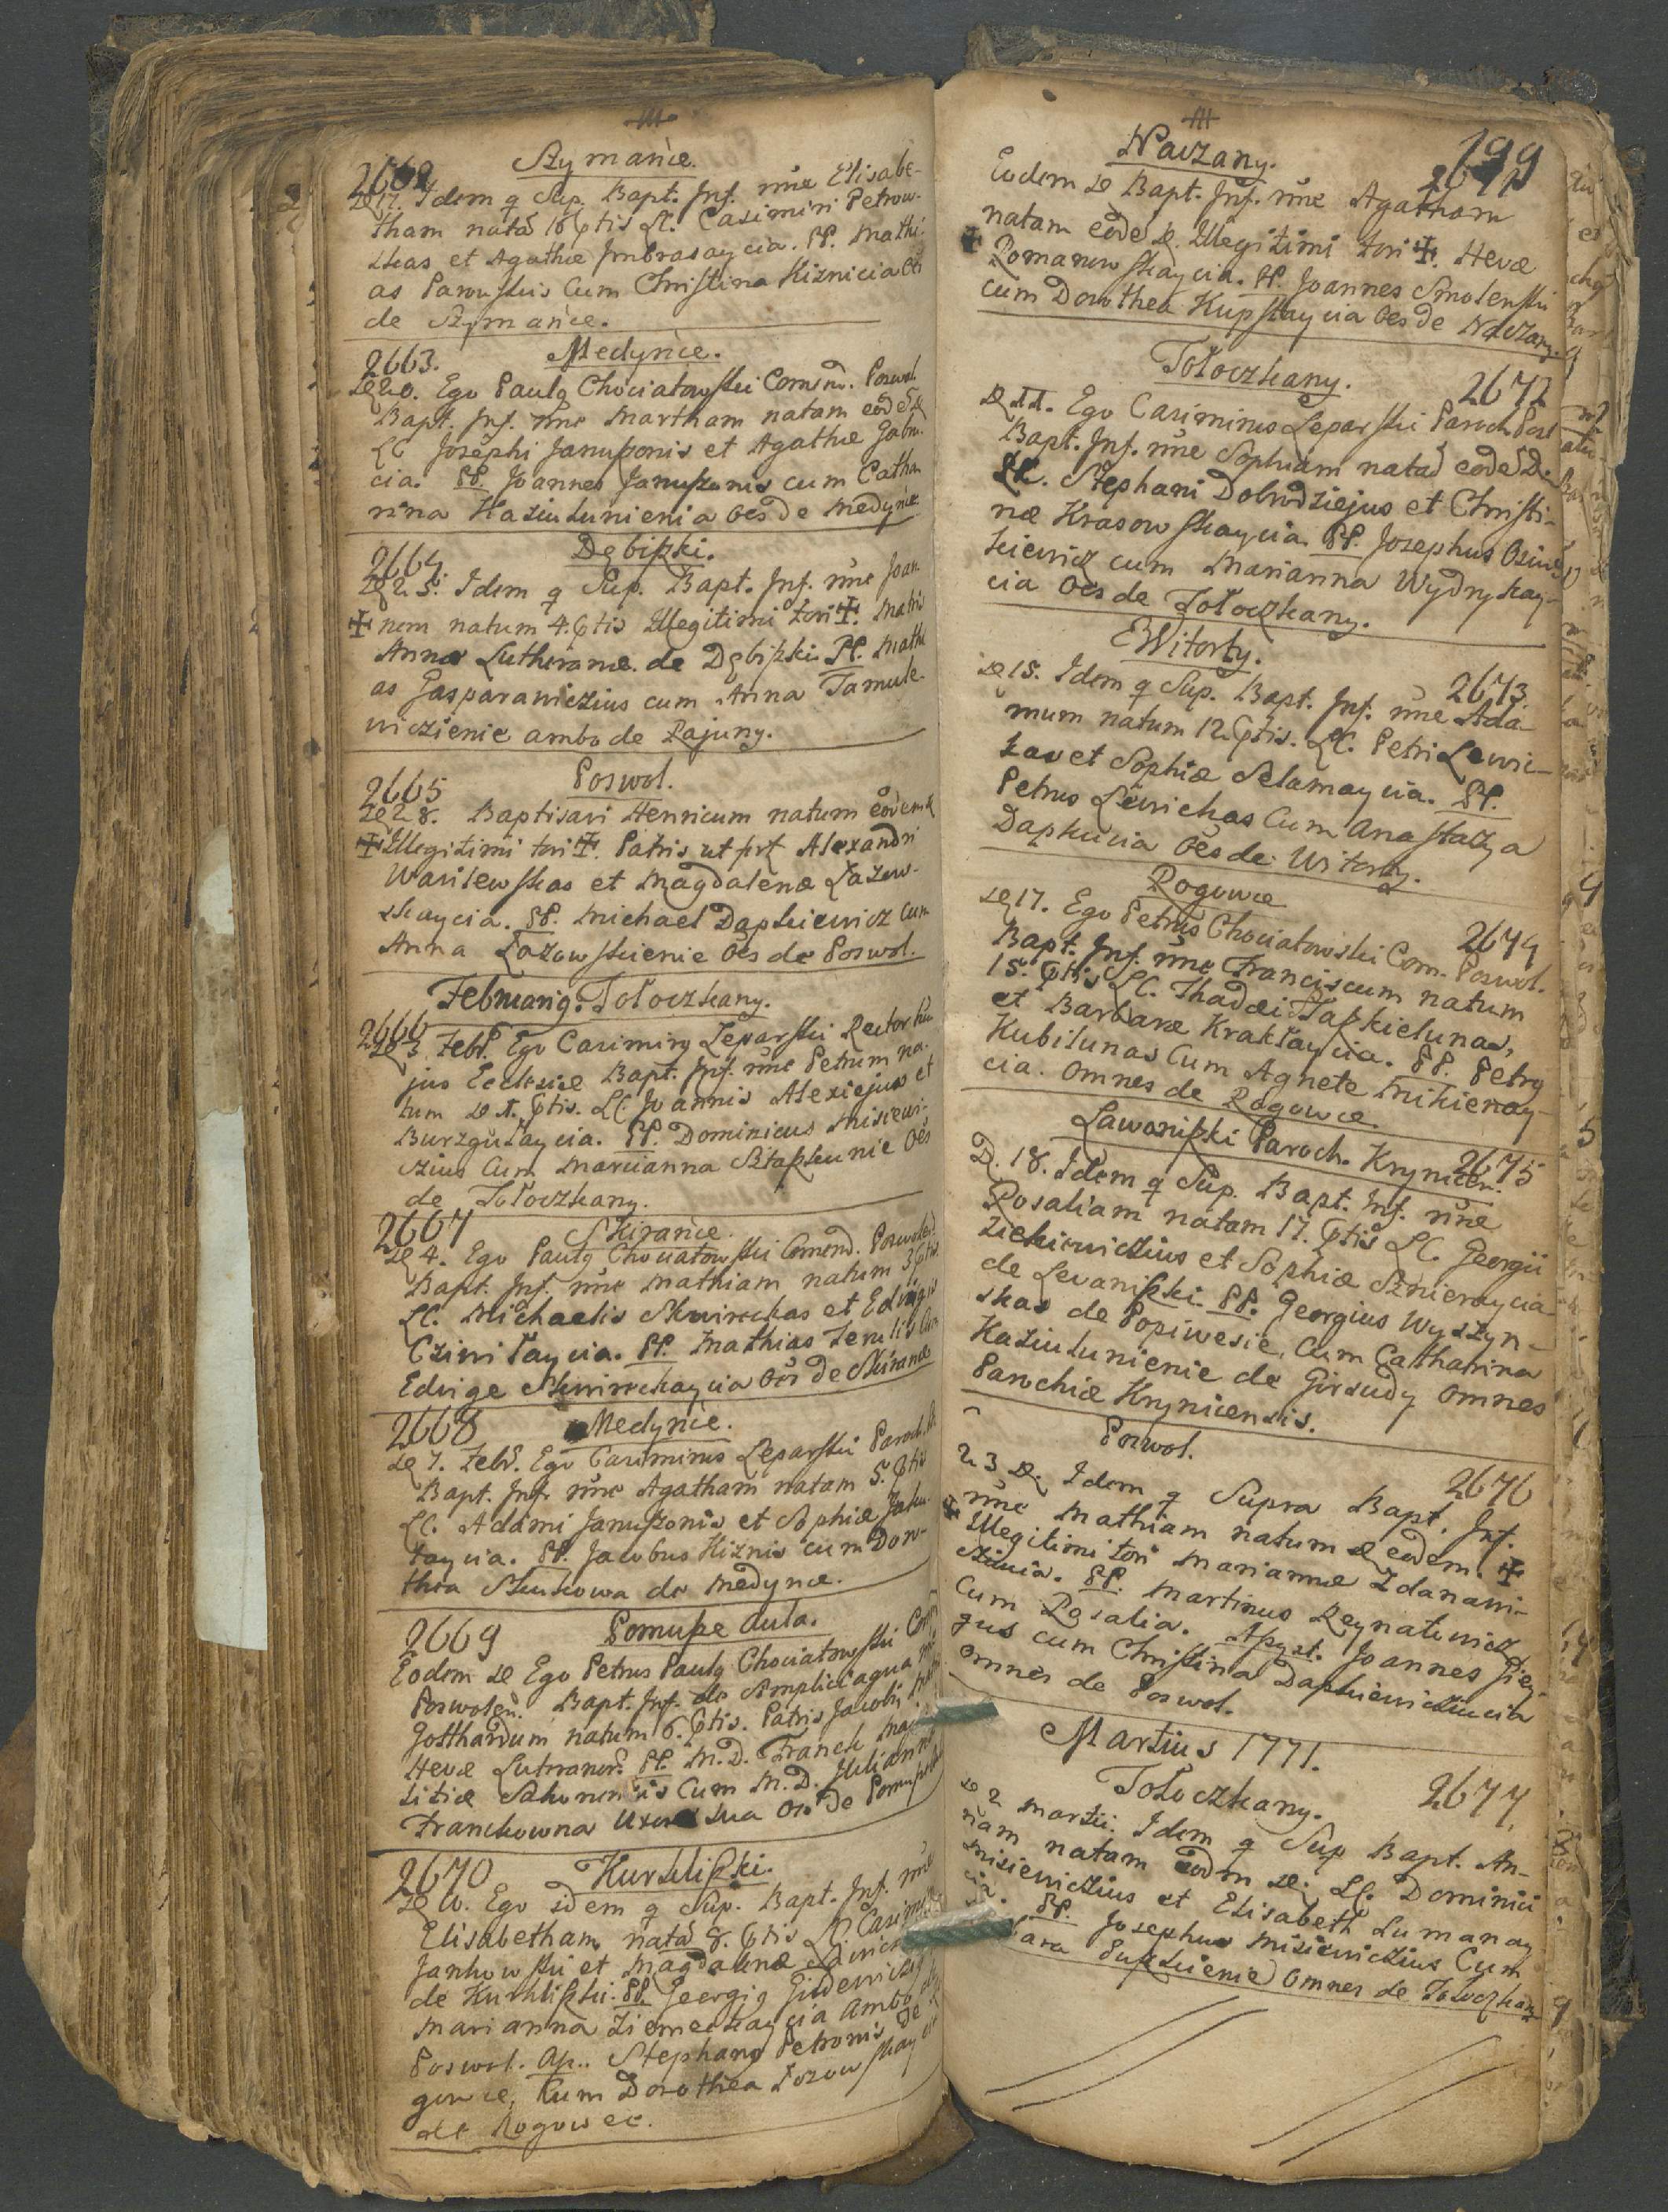 Szymańce.
2662
D 17. Idem q Sup. Bapt. Inf. nñe Elisabe-
tham natā 16 ejtis LC. Casimiri Petrow-
skas et Agathæ Imbrasaycia. PP. Mathi-
as Parowskis Cum Christina Kiznicia Oes
de Szymańce.
2663. Medyńce.
D 20. Ego Paulg Chociatowski Comend. Poswol
Bapt. Inf. nñe Martham natam eodē D
LC Josephi Januszonis et Agathæ Gabri-
cia. PP. Joannes Januszonis cum Catha
rina Kaziulunienia Oes de Medynce
2664. Dębiszki.
D 25. Idem q Sup. Bapt. Inf. nñe Joan
nem natum 4. ejtis Illegitimi tori. Matris
Annæ Lutheranæ de Dębiszki PP. Mathi
as Gasparawiczius cum Anna Tamule-
wiczienie ambo de Rajuny.
2665 Poswol.
D 28. Baptisavi Henricum natum eodem D
Illegitimi tori. Patris ut fert Alexandri
Wasilewskas et Magdalenæ Łazow-
skaycia. PP. Michael Dapkiewicz Cum
Anna Łazowskienie Oes de Poswol.
Februarig. Tołoczkany.
2666
D 3 Febr. Ego Casimirg Leparski Rector hu
jus Ecclesiæ Bapt. Inf. nñe Petrum na-
tum D 1. ejtis. LC. Joannis Alexiejus et
Burzgułaycia. PP. Dominicus Misiewi-
czius Cum Marianna Sztaszkunie Oes
de Tołoczkany.
2667 Skirańce.
D 4. Ego Paulg Chociatowski Comend. Poswolen.
Bapt. Inf. nñe Mathiam natum 3 ejtis
LC. Michaelis Skwireckas et Edvigis
Czinitaycia. PP. Mathias Zerulis Cum
Edvige Skwireckaycia Oes de Skirance
2668 Medyńce.
D 7. Febr. Ego Casimirus Leparski Paroch. P
Bapt. Inf. nñe Agatham natam 5. ejtis
LC. Adami Januszonis et Sophiæ Jaku-
taycia. PP. Jacobus Kiznis cum Doro-
thea Skukowa de Medynce.
2669 Pomusze Aula.
Eodem D Ego Petrus Paulg Chociatowski Com
Poswolen. Bapt. Inf. de Simplici aqua nñe
Gotthardum natum 6. ejtis. Patris Jacobi Matris
Hevæ Luteranor. PP. M.D. Franck
titiæ Salonensis Cum M.D. Julianna
Franckowna Uxore sua Oes de Pomusze
2670 Kurkliszki.
D 10. Ego idem q Sup. Bapt. Inf. nñe
Elisabetham natā 8. ejtis LC Casimiri
Jankowski et Magdalenæ
de Kurkliszki. PP. Georgig Giedewicz
Marianna Ziemeckaycia Ambo de
Poswol. Ap.. Stephang Petronis de
gowce, Cum Dorothea Łozowskay
de Rogowce.
199
Naczany.
2671
Eodem D Bapt. Inf. nñe Agatham
natam eodē D. Illegitimi tori. Hevæ
Romanowskaycia. PP. Joannes Smolenski
cum Dorothea Kupskaycia Oes de Naczany.
Tołoczkany.
2672
D 11. Ego Casimirus Leparski Paroch Posl
Bapt. Inf. nñe Sophiam natā eodē D.
LC. Stephani Dobrodziejus et Christi-
næ Krasowskaycia. PP. Josephus Osins-
kiewicz cum Marianna Wydryskay-
cia Oes de Tołoczkany.
Witorty.
2673.
D 15. Idem q Sup. Bapt. Inf. nñe Ada-
mum natum 12. ejtis. LC. Petri Lewic-
kas et Sophiæ Selamaycia. PP.
Petrus Lewickas Cum Anastazya
Dapkucia Oes de Witorty.
Rogowce
2674
D 17. Ego Petrus Chociatowski Com. Poswol.
Bapt. Inf. nñe Franciscum natum
15. ejtis LC. Thadæi Taszkielunas,
et Barbaræ Kraktaycia. PP. Petrg
Kubilunas Cum Agnete Mikienay-
cia. Omnes de Rogowce.
Lawoniszki Paroch. Krynicen.
2675
D. 18. Idem q Sup. Bapt. Inf. nñe
Rosaliam natam 17. ejtis LC. Georgii
Ziekiewiczius et Sophiæ Sznieraycia
de Levaniszki. PP. Georgius Wyszyn-
skas de Popiwesie, Cum Catharina
Kaziulunienie de Girsudy Omnes
Parochiæ Krynicensis.
Poswol.
2676
23 D. Idem q Supra Bapt. Inf.
nñe Mathiam natum D eodem.
Illegitimi tori Mariannæ Zdanawi-
cziucia. PP. Martinus Reynatowicz
Cum Rosalia. Apyst. Joannes Giey-
gus cum Christina Dapkiewicziucia
omnes de Poswol.
Martius 1771.
Tołoczkany.
2677.
D 2 Martii. Idem q Sup Bapt. An-
nam natam eodm D. LC. Dominici
Misiewiczius et Elisabeth Lumanay
cia. PP. Josephus Misiewiczius Cum
bara Suszkienie Omnes de Tołoczkany